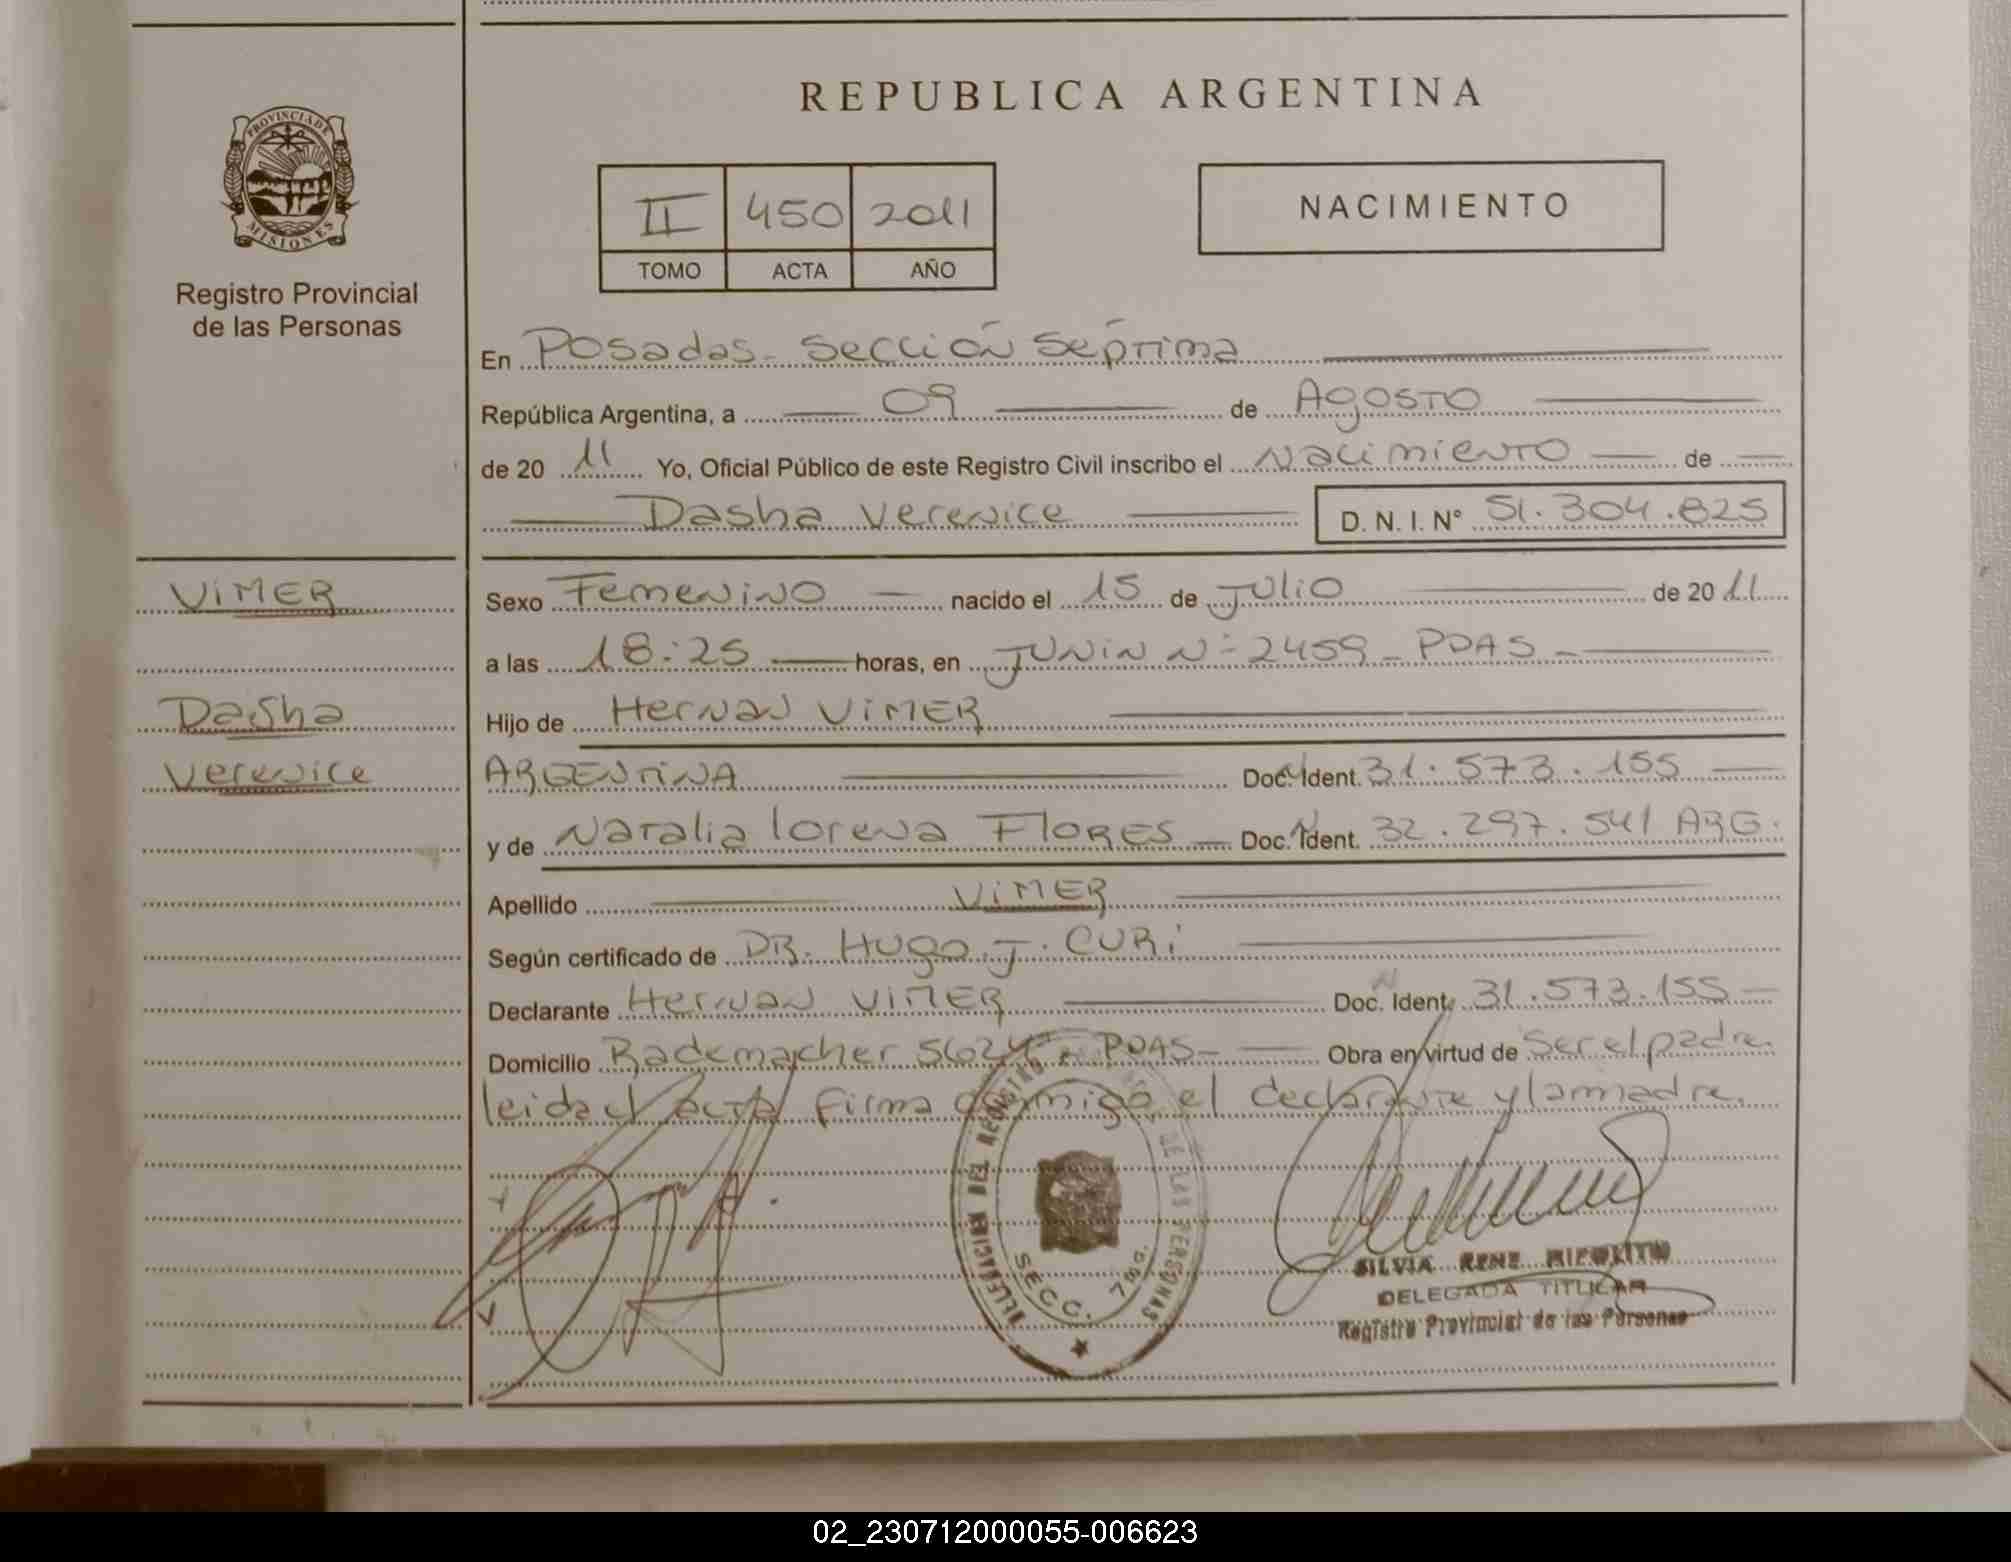 REPUBLICA ARGENTINA
PROVINCIA DE
MISIONES
Registro Provincial
de las Personas
II 450 2011
TOMO ACTA AÑO
NACIMIENTO
En Posadas - Sección Séptima
República Argentina, a 09 de Agosto
de 20 11 Yo, Oficial Público de este Registro Civil inscribo el Nacimiento de
Dasha Verenice D. N. I. N° 51.304.825
VIMER
Dasha
Verenice
Sexo Femenino nacido el 15 de Julio de 20 11
a las 18:25 horas, en JUNIN N° 2459 - PDAS -
Hijo de Hernan VIMER
ARGENTINA Doc. Ident. 31.573.155
y de Natalia Lorena FLORES Doc. Ident. 32.297.541 ARG.
Apellido VIMER
Según certificado de DR. HUGO. J. CURI
Declarante Hernan VIMER Doc. Ident. 31.573.155
Domicilio Rademacher 5624 - PDAS - Obra en virtud de Ser el padre
leida el acta firma conmigo el declarante y la madre.
DELEGACION DEL REGISTRO DE LAS PERSONAS
SECC. 7ma.
SILVIA RENE
DELEGADA TITULAR
Registro Provincial de las Personas
02_230712000055-006623